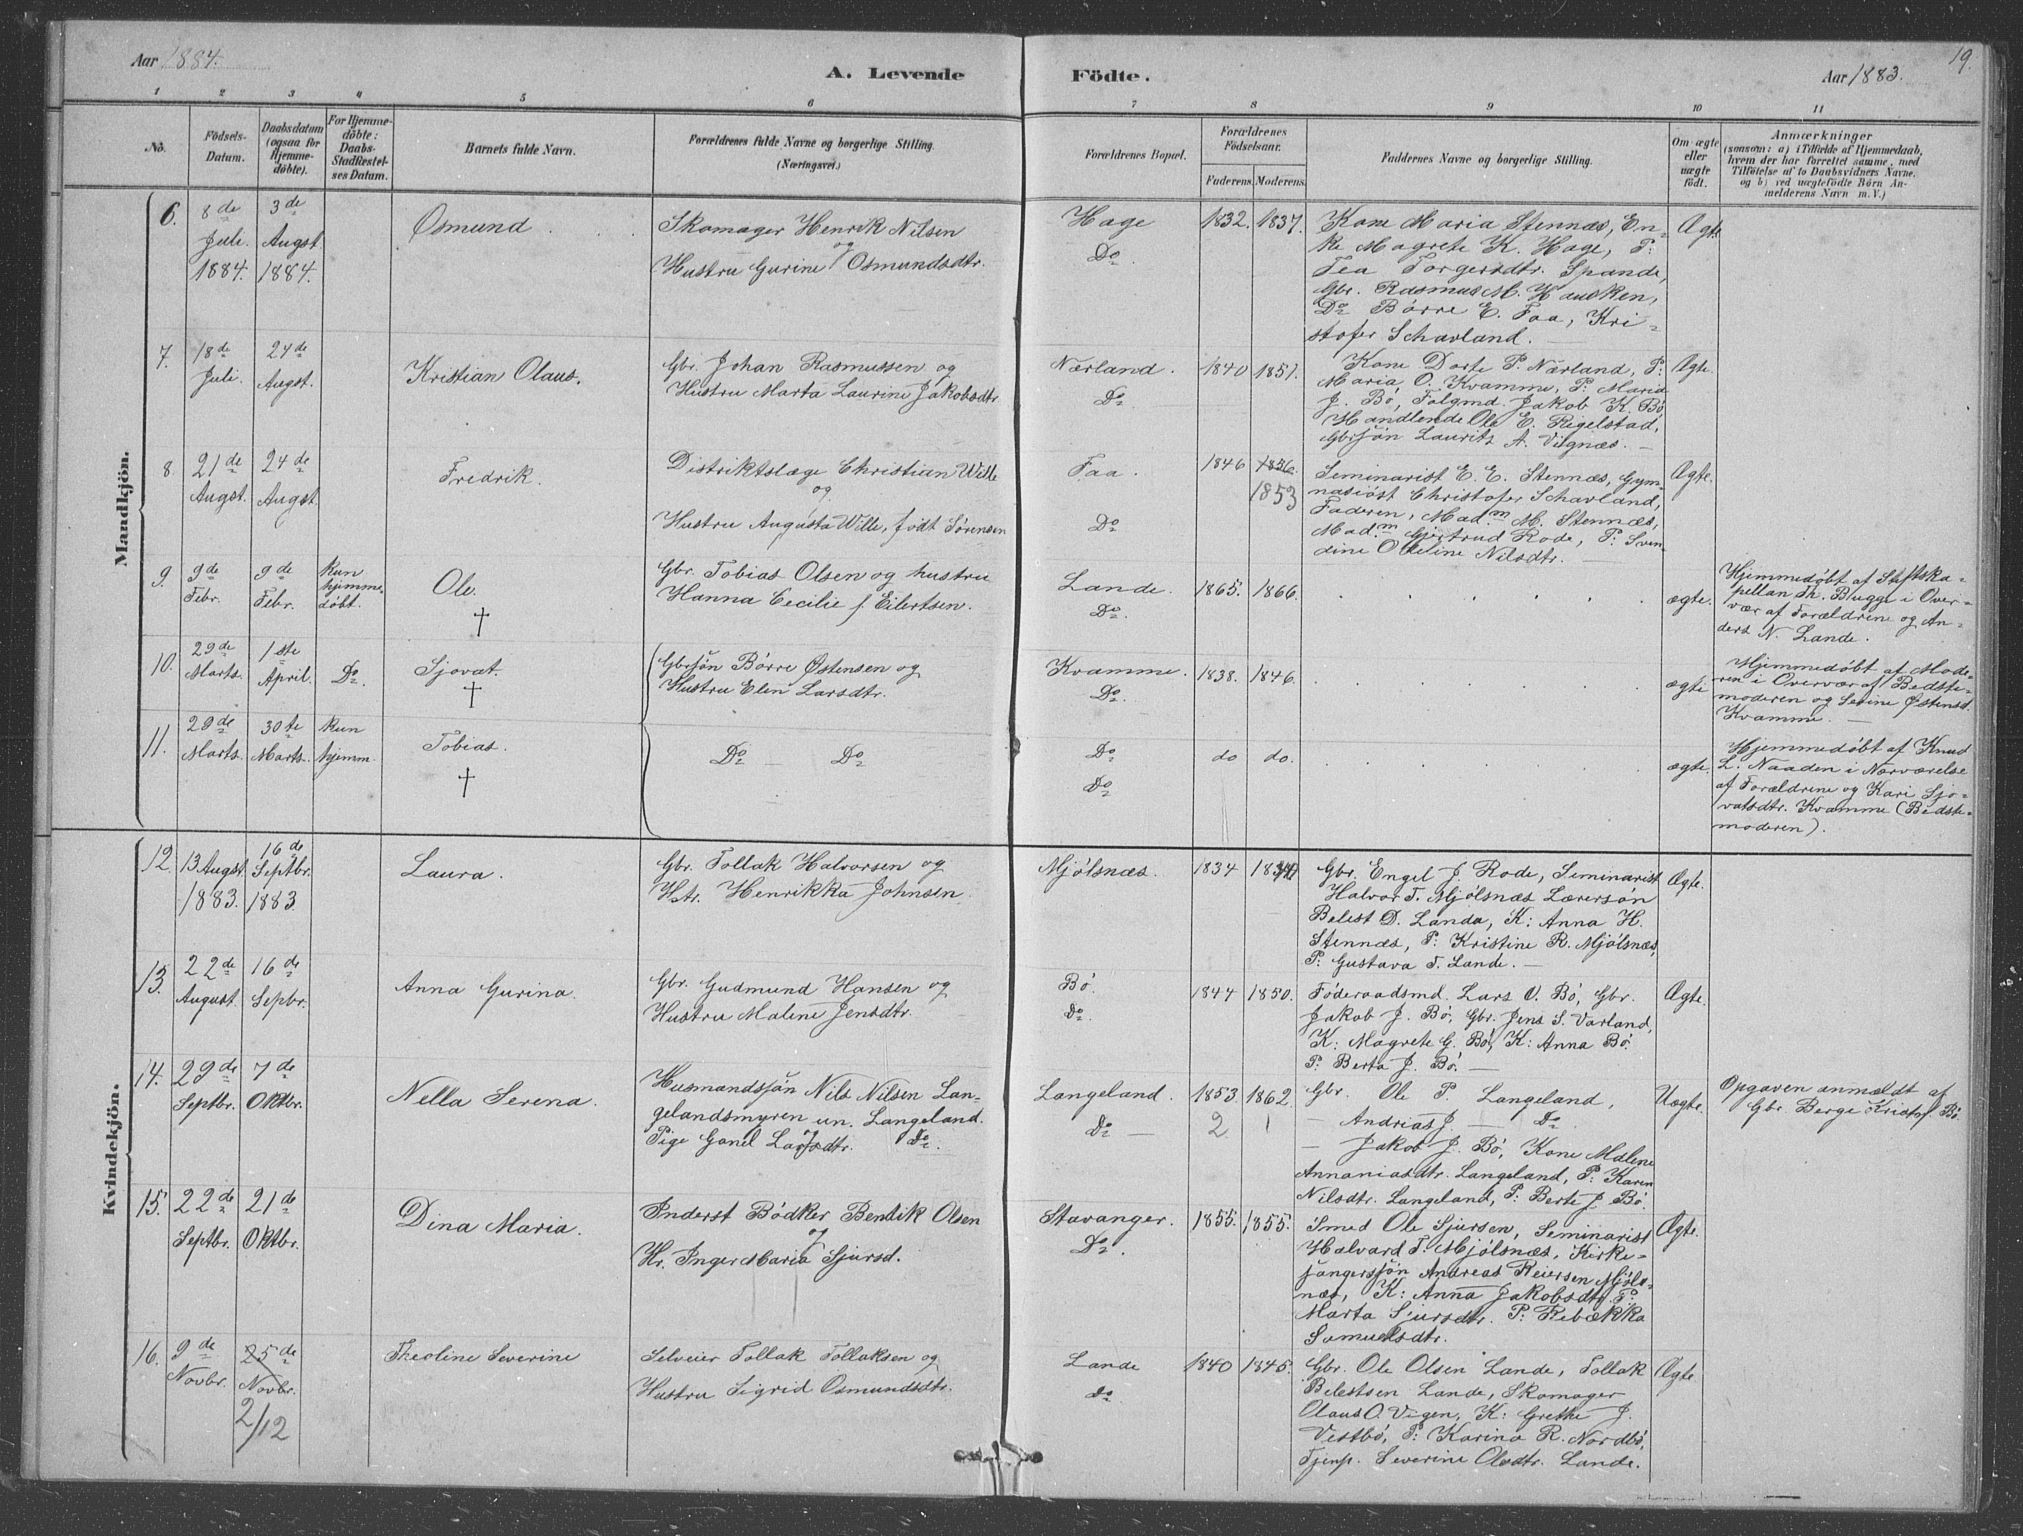 Aar 1884.
A. Levende Födte.
Aar 1883.
19.
1 2 3 4 5 6 7 8 9 10 11
No.
Födsels-
Datum.
Daabsdatum
(ogsaa for
Hjemme-
döbte).
For Hjemme-
döbte:
Daabs-
Stadfæstel-
ses Datum.
Barnets fulde Navn.
Forældrenes fulde Navne og borgerlige Stilling.
(Næringsvei.)
Forældrenes Bopæl.
Forældrenes
Födselsaar.
Faderens. Moderens.
Faddernes Navne og borgerlige Stilling.
Om ægte
eller
uægte
födt.
Anmærkninger
(saasom: a) i Tilfælde af Hjemmedaab,
hvem der har forrettet samme, med
Tilföielse af to Daabsvidners Navne.
og b) ved uægtefödte Börn An-
melderens Navn m. V.)
Mandkjön.
6. 8de
Juli
1884.
3de
Augst.
1884.
Osmund
Skomager Henrik Nilsen
og
Hustru Gurine Osmundsdtr.
Hage
Do
1832. 1837.
Kone Maria Stennæs, En-
ke Magrete K. Hage, P:
Tea Torgersdtr. Spande,
Gbr. Rasmus M. Hausken,
Do Børre E. Faa, Kri-
stofer Schavland.
Ægte
7. 18de
Juli.
24de
Augst.
Kristian Olaus.
Gbr. Johan Rasmussen og
Hustru Marta Laurine Jakobsdtr.
Nærland.
Do
1840 1851.
Kone Dorte P. Nærland, P:
Maria O. Kvamme, P: Maria
J. Bø, Følgmd. Jakob K. Bø
Handlende Ole E. Rigelstad,
Gbrsøn Laurits A. Vignæs.
Ægte.
8. 21de
Augst.
24de
Augst.
Fredrik.
Distriktslæge Christian Wille
og
Hustru Augusta Wille, født Sørensen
Faa.
Do
1846 1856.
1853
Seminarist E. E. Stennæs, Gym-
nasiast Christofer Schavland,
Faderen, Madm M. Stennæs,
Madm Gjertrud Rode, P: Sven-
dine Oleline Nilsdtr.
Ægte.
9. 9de
Febr.
9de
Febr.
kun
hjemme-
døbt.
Ole.
†
Gbr. Tobias Olsen og hustru
Hanna Cecilie f. Eilertsen.
Lande.
Do.
1865. 1866.
ægte.
Hjemmedøbt af Stiftska-
pellan Th. Bugge i Over-
vær af Forældrene og An-
ders N. Lande.
10. 29de
Marts.
1ste
April.
Do.
Sjovat.
†
Gbrsøn Børre Østensen og
Hustru Elen Larsdtr.
Kvamme.
Do.
1838. 1846.
ægte
Hjemmedøbt af Mode-
ren i Overvær af Bedste-
moderen og Serine Østensd.
Kvamme.
11. 29de
Marts.
30te
Marts.
kun
hjemm.
Tobias.
†
Do — Do
Do
Do
do do.
ægte.
Hjemmedøbt af Knud
L. Naaden i Nærværelse
af Forældrene og Kari Sjo-
vatsdtr. Kvamme (Bedste-
moderen).
Kvindekjön.
12. 13 Augst.
1883.
16de
Septbr.
1883
Laura.
Gbr. Tollak Halvorsen og
Hstr. Henrikka Johnsen.
Mjølsnæs.
1834
Gbr. Engel J. Rode, Seminarist
Halvor T. Mjølsnæs Lærersøn
Belest D. Landa, K: Anna H.
Stennæs, P: Kristine R. Mjølsnæs,
P: Gustava T. Lande.
Ægte.
13. 22de
August.
16de
Sepbr.
Anna Gurina.
Gbr. Gudmund Hansen og
Hustru Malene Jensdtr.
Bø.
Do.
1844 1850.
Føderaadsmd. Lars V. Bø, Gbr.
Jakob J. Bø, Gbr. Jens S. Varland,
K: Magrete G. Bø, K: Anna Bø.
P: Berta J. Bø.
Ægte.
14. 29de
Septbr.
7de
Oktbr.
Nella Serena.
Husmandssøn Nils Nilsen Lan-
gelandsmyren un. Langeland.
Pige Gonel Larsdtr. Do.
Langeland.
Do —
1853 1862.
2 1
Gbr. Ole P. Langeland,
— Andrias J. — Do
— Jakob J. Bø, Kone Malene
Annaniasdtr. Langeland, P: Karen
Nilsdtr. Langeland, P: Berte J. Bø.
Uægte.
Opgaven anmældt af
Gbr Berge Kristof. Bø.
15. 22de
Septbr.
21de
Oktbr.
Dina Maria.
Inderst Bødker Bendik Olsen
og
Hr. Inger Maria Sjursd.
Stavanger.
Do.
1855. 1855.
Smed Ole Sjursen, Seminarist
Halvard T. Mjølsnæs, Kirke-
sangersøn Andreas Reiersen Mjøls-
næs, K: Anna Jakobsdtr. P:
Marta Sjursdtr. P: Rebækka
Samuelsdtr.
Ægte.
16. 9de
Novbr.
25de
Novbr.
2/12
Theoline Severine
Selveier Tollak Tollaksen og
Hustru Sigrid Osmundsdtr.
Lande
do
1840 1845.
Gbr. Ole Olsen Lande, Tollak
Belestsen Lande, Skomager
Olaus O. Vigen, K: Grethe J.
Vestbø, P: Karina R. Nordbø,
Tjenp. Severine Olsdtr. Lande.
Ægte